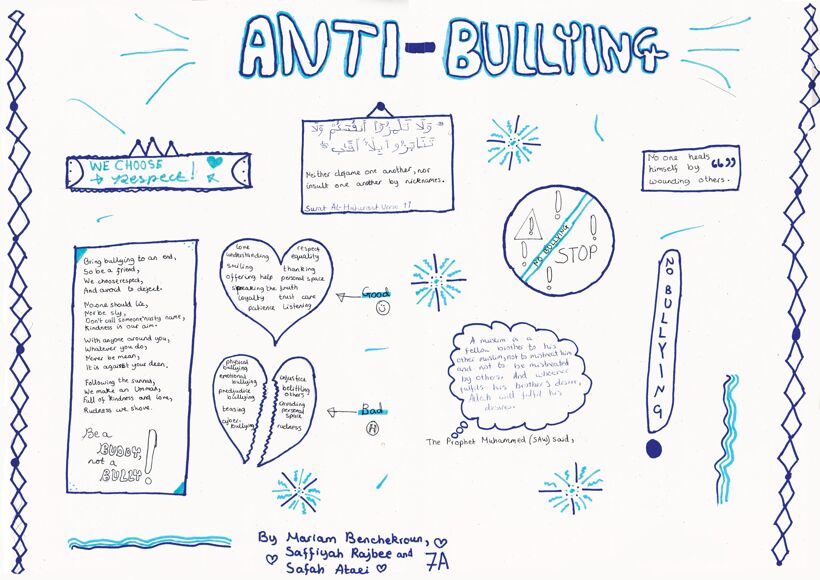 ANTI-BULLYING
WE CHOOSE
→ Respect!
Neither defame one another, nor
insult one another by nicknames.
Surat Al-Hujuraat Verse 11
No one heals
himself by
wounding others.
NO BULLYING
STOP
NO BULLYING
Bring bullying to an end,
So be a friend,
We choose respect,
And avoid to deject.
No one should lie,
Nor be sly,
Don't call someone nasty name,
Kindness is our aim.
With anyone around you,
Whatever you do,
Never be mean,
It is against your deen.
Following the sunna,
We make an Ummah,
Full of kindness and love,
Rudeness we shove.
Be a
BUDDY,
not a
BULLY!
love
respect
understanding
equality
smiling
thanking
offering help
personal space
speaking the truth
loyalty
trust care
patience
listening
Good
physical
bullying
emotional
bullying
prejudice
bullying
teasing
cyber
bullying
injustice
belittling
others
invading
personal
space
rudeness
Bad
A muslim is a
fellow brother to his
other muslim, not to mistreat him
and not to be mistreated
by others. And whoever
fulfils his brother's desire,
Allah will fulfil his
desires.
The Prophet Muhammed (SAW) said,
By Mariam Benchekroun,
Saffiyah Rajbee and
Safah Ataei
7A